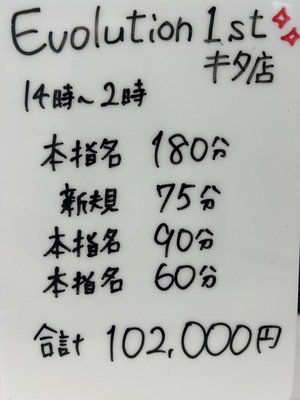 Evolution 1st
キタ店
14時～2時
本指名 180分
新規 75分
本指名 90分
本指名 60分
合計 102,000円